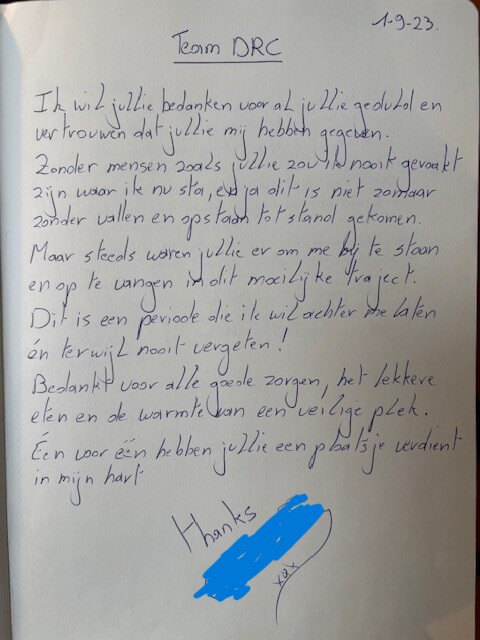 1-9-23.
Team DRC
Ik wil jullie bedanken voor al jullie geduld en
vertrouwen dat jullie mij hebben gegeven.
Zonder mensen zoals jullie zou ik nooit geraakt
zijn waar ik nu sta, en ja dit is niet zomaar
zonder vallen en opstaan tot stand gekomen.
Maar steeds waren jullie er om me bij te staan
en op te vangen in dit moeilijke traject.
Dit is een periode die ik wil achter me laten
én terwijl nooit vergeten!
Bedankt voor alle goede zorgen, het lekkere
eten en de warmte van een veilige plek.
Één voor één hebben jullie een plaatsje verdient
in mijn hart
Thanks
xox